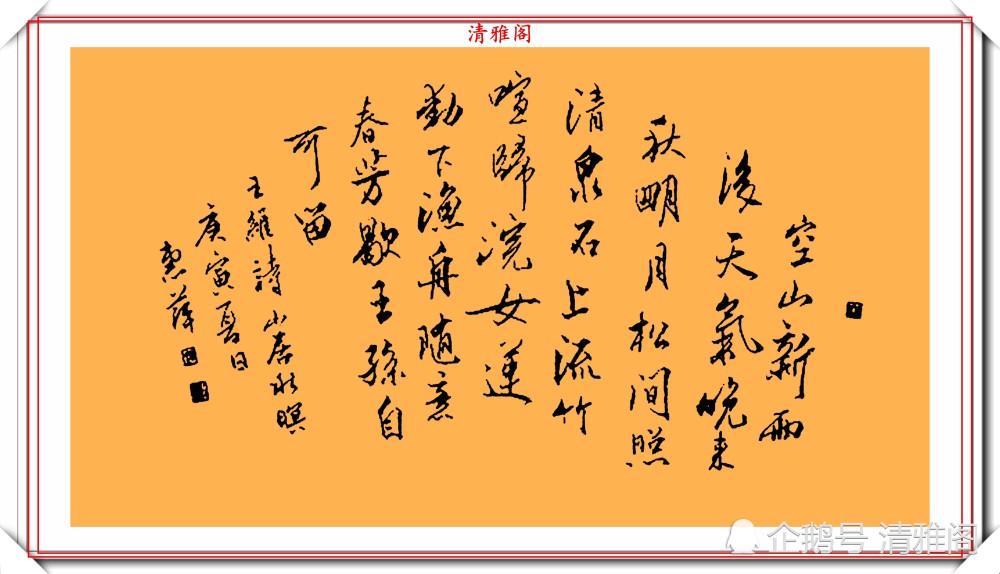 清雅阁
空山新雨
後天氣晚来
秋明月松间照
清泉石上流竹
喧歸浣女莲
動下渔舟随意
春芳歇王孫自
可留
王維詩山居秋暝
庚寅夏日
惠萍
企鹅号 清雅阁